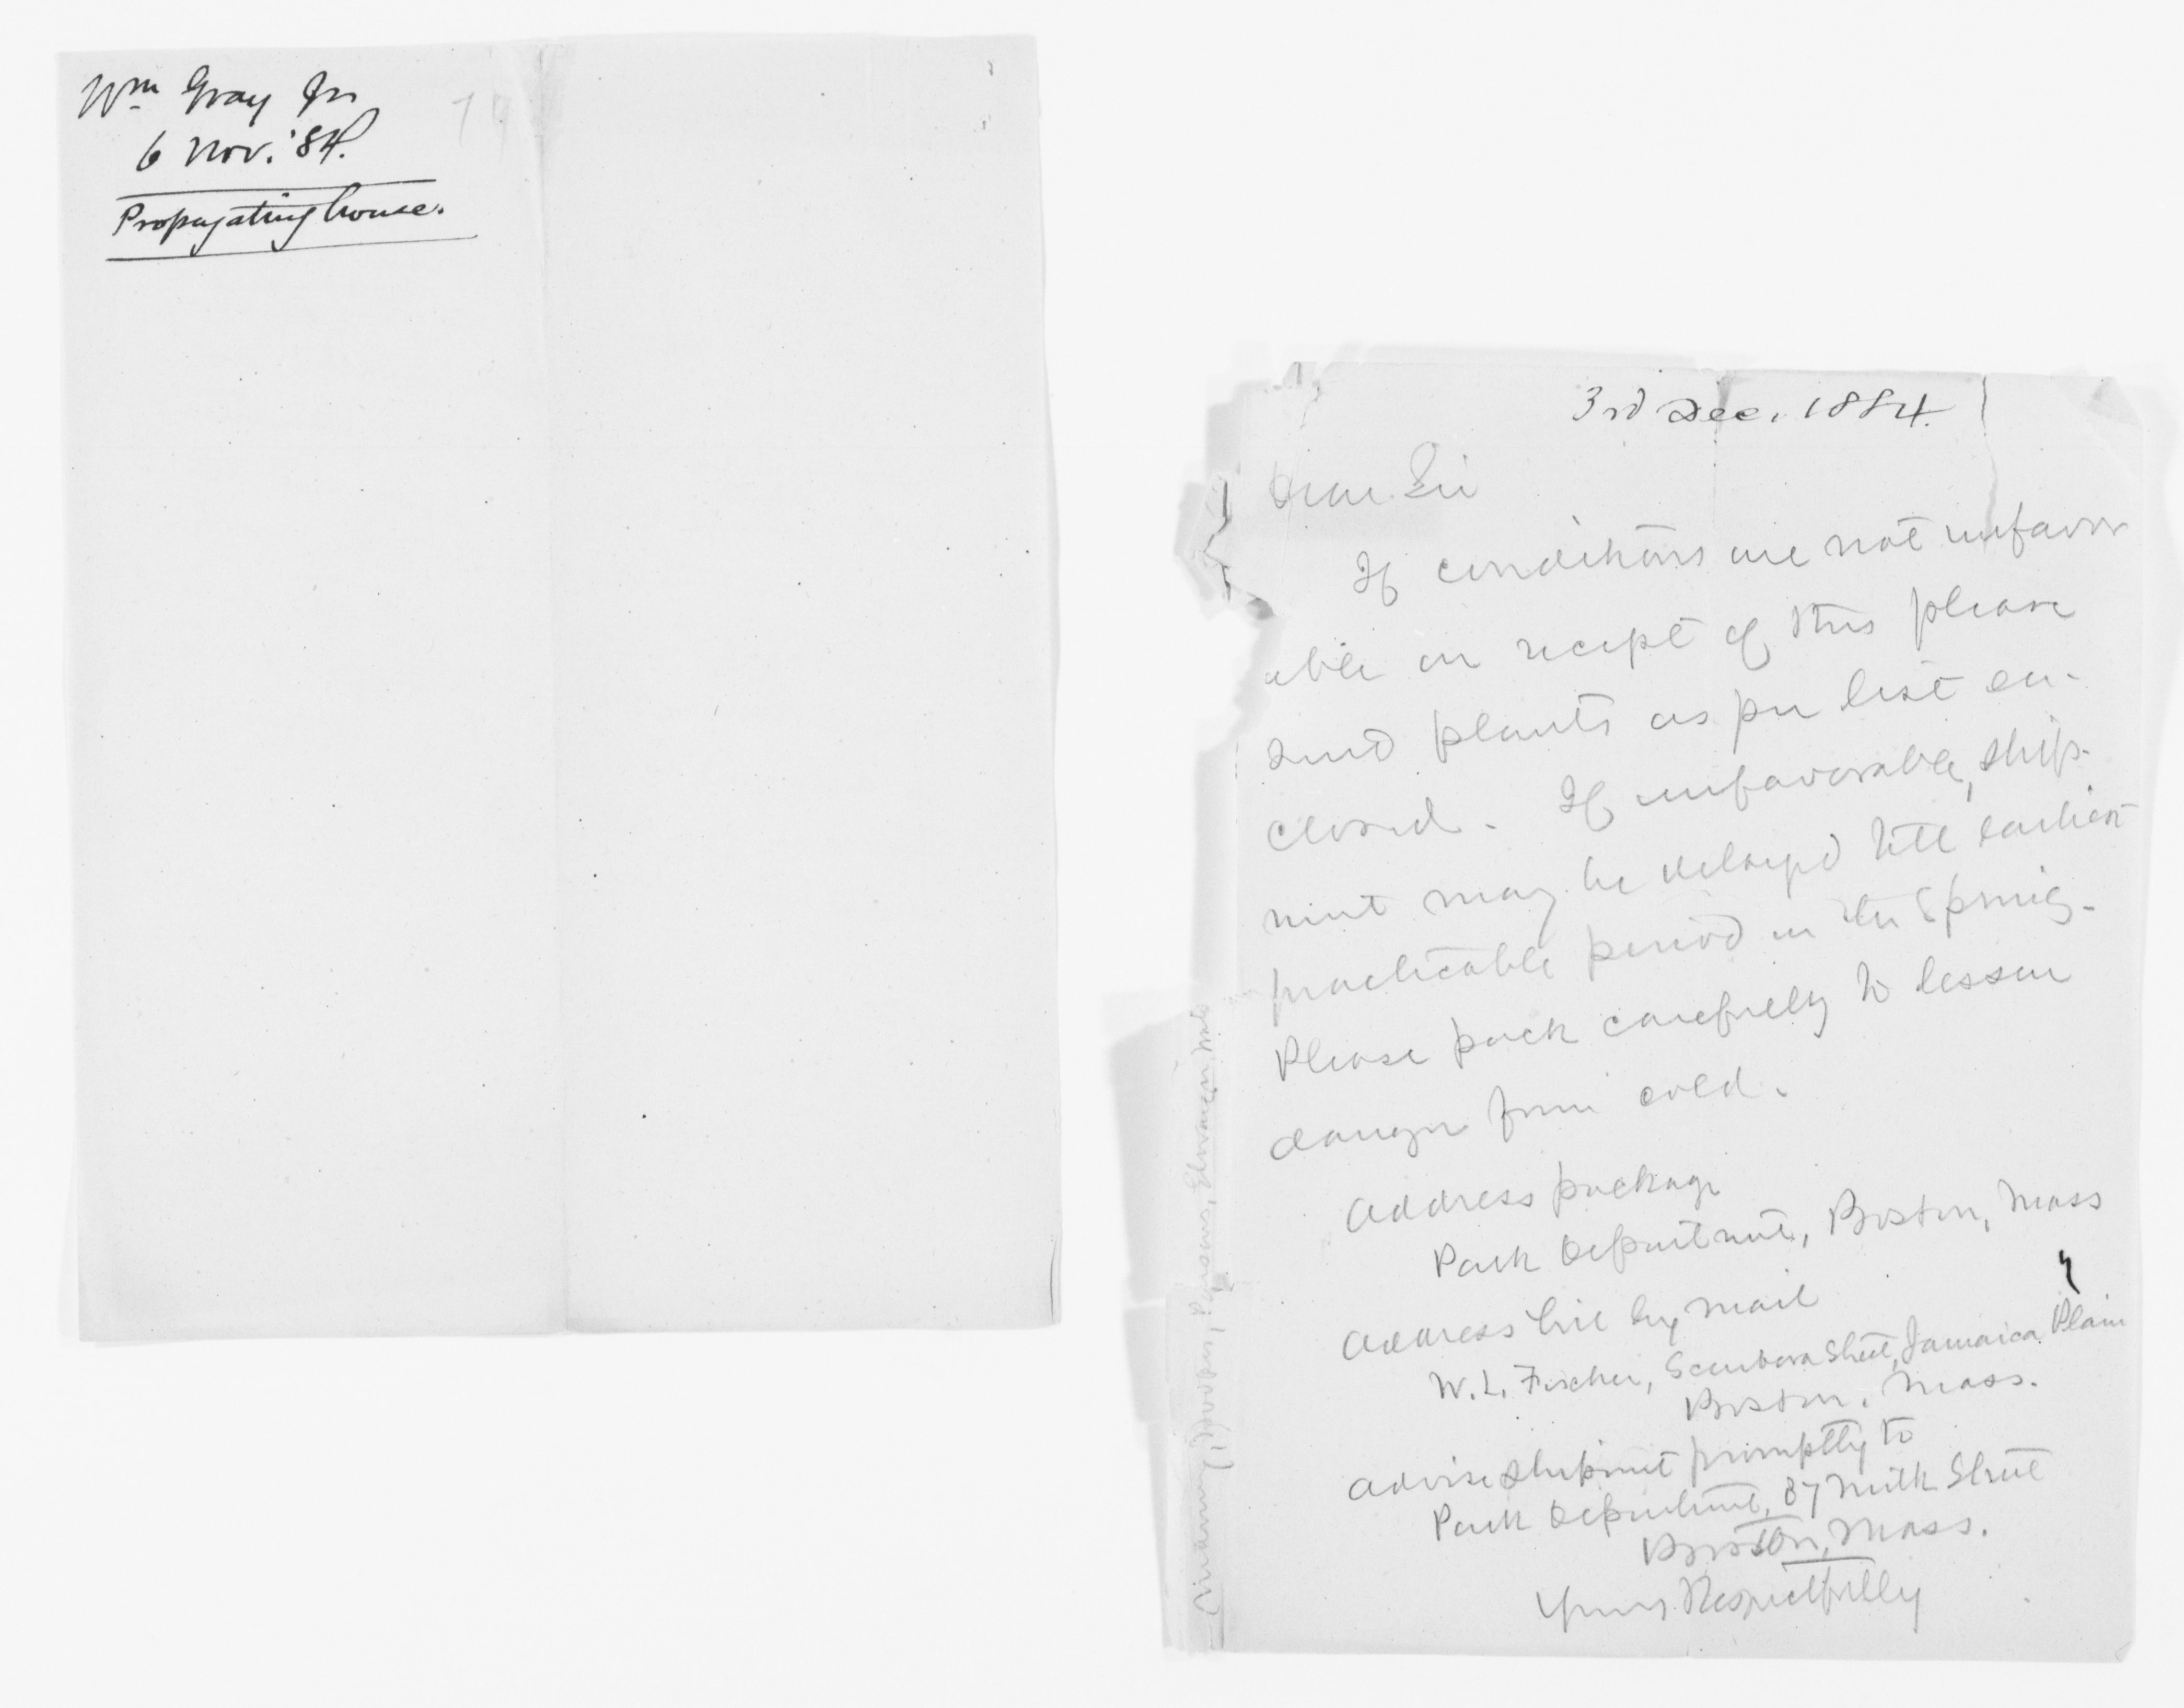 Wm Gray Jr
6 Nov. '84.
Propagating house.
3rd Dec. 1884.
Dear Sir
If conditions are not unfavor
able on receipt of this please
send plants as per list en-
closed. If unfavorable, ship-
ment may be delayed till earliest
practicable period in the Spring.
Please pack carefully to lessen
danger from cold.
Address package
Park Department, Boston, Mass
Address bill by mail
W. L. Fischer, Scarboro Street, Jamaica Plain
Boston, Mass.
Advise shipment promptly to
Park Department, 87 Milk Street
Boston, Mass.
Yours Respectfully
Hoopes, Parsons, Ellwanger